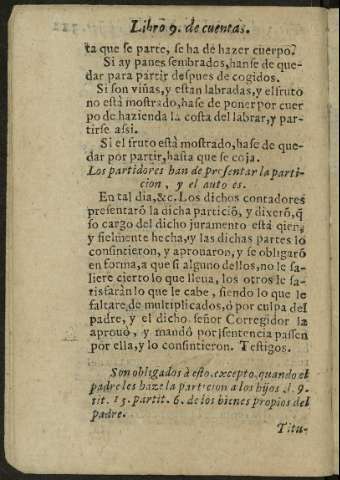 Libro 9. de cuentas.
ta que se parte, se ha de hazer cuerpo.
Si ay panes sembrados, hanse de que-
dar para partir despues de cogidos.
Si son viñas, y estan labradas, y el fruto
no està mostrado, hase de poner por cuer
po de hazienda la costa del labrar, y par-
tirse assi.
Si el fruto està mostrado, hase de que-
dar por partir, hasta que se coja.
Los partidores han de presentar la parti-
cion, y el auto es.
En tal dia, &c. Los dichos contadores
presentarõ la dicha particiõ, y dixerõ, q̃
so cargo del dicho juramento està
y fielmente hecha, y las dichas partes lo
consintieron, y aprouaron, y se obligarõ
en forma, a que si alguno dellos, no le sa-
liere cierto lo que lleua, los otros le sa-
tisfaràn lo que le cabe, siendo lo que le
faltare de multiplicados, ò por culpa del
padre, y el dicho señor Corregidor la
aprouò, y mandò por sentencia passen
por ella, y lo consintieron. Testigos.
Son obligados à esto, excepto, quando el
padre les haze la particion a los hijos l. 9.
tit. 15. partit. 6. de los bienes propios del
padre.
Titu-